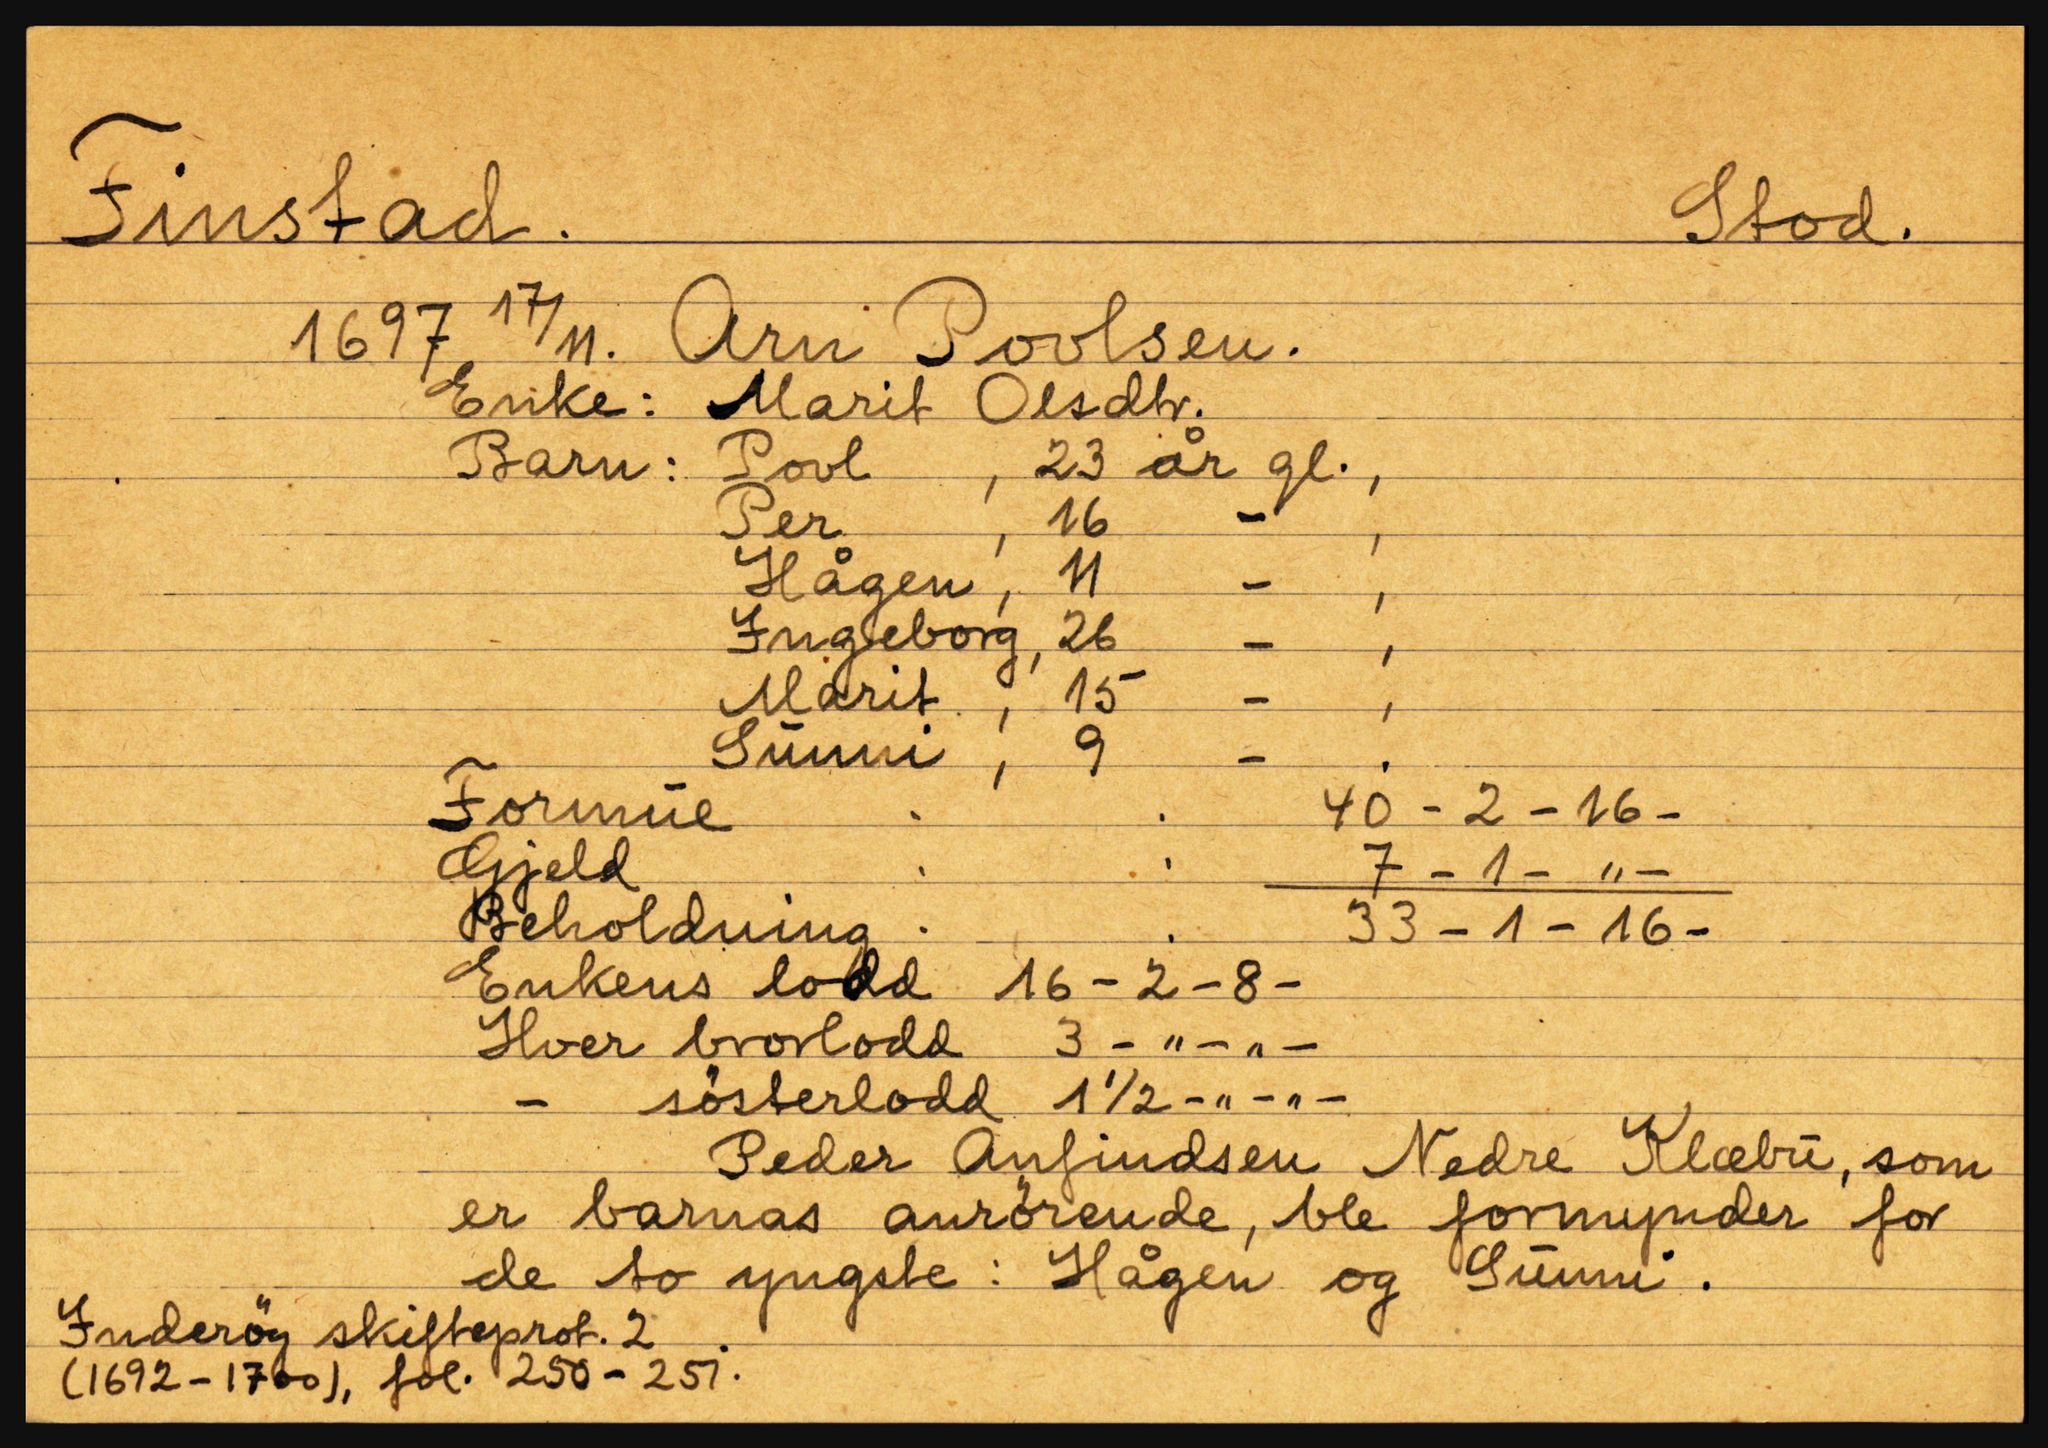 Finstad. Stod.
1697 17/11. Arn Povlsen.
Enke: Marit Olsdtr.
Barn: Povl , 23 år gl.,
Per , 16 - ,
Hågen, 11 - ,
Ingeborg, 26 - ,
Marit , 15 - ,
Sūnni , 9 - .
Formūe . . 40 - 2 - 16 -
Gjeld . . 7 - 1 - " -
Beholdning . . 33 - 1 - 16 -
Enkens lodd 16 - 2 - 8 -
Hver brorlodd 3 - " - " -
- sösterlodd 1 1/2 - " - " -
Peder Anfindsen Nedre Klæbū, som
er barnas anrörende, ble formynder for
de to yngste: Hågen og Sūnni.
Inderöy skifteprot. 2
(1692-1700), fol. 250-251.